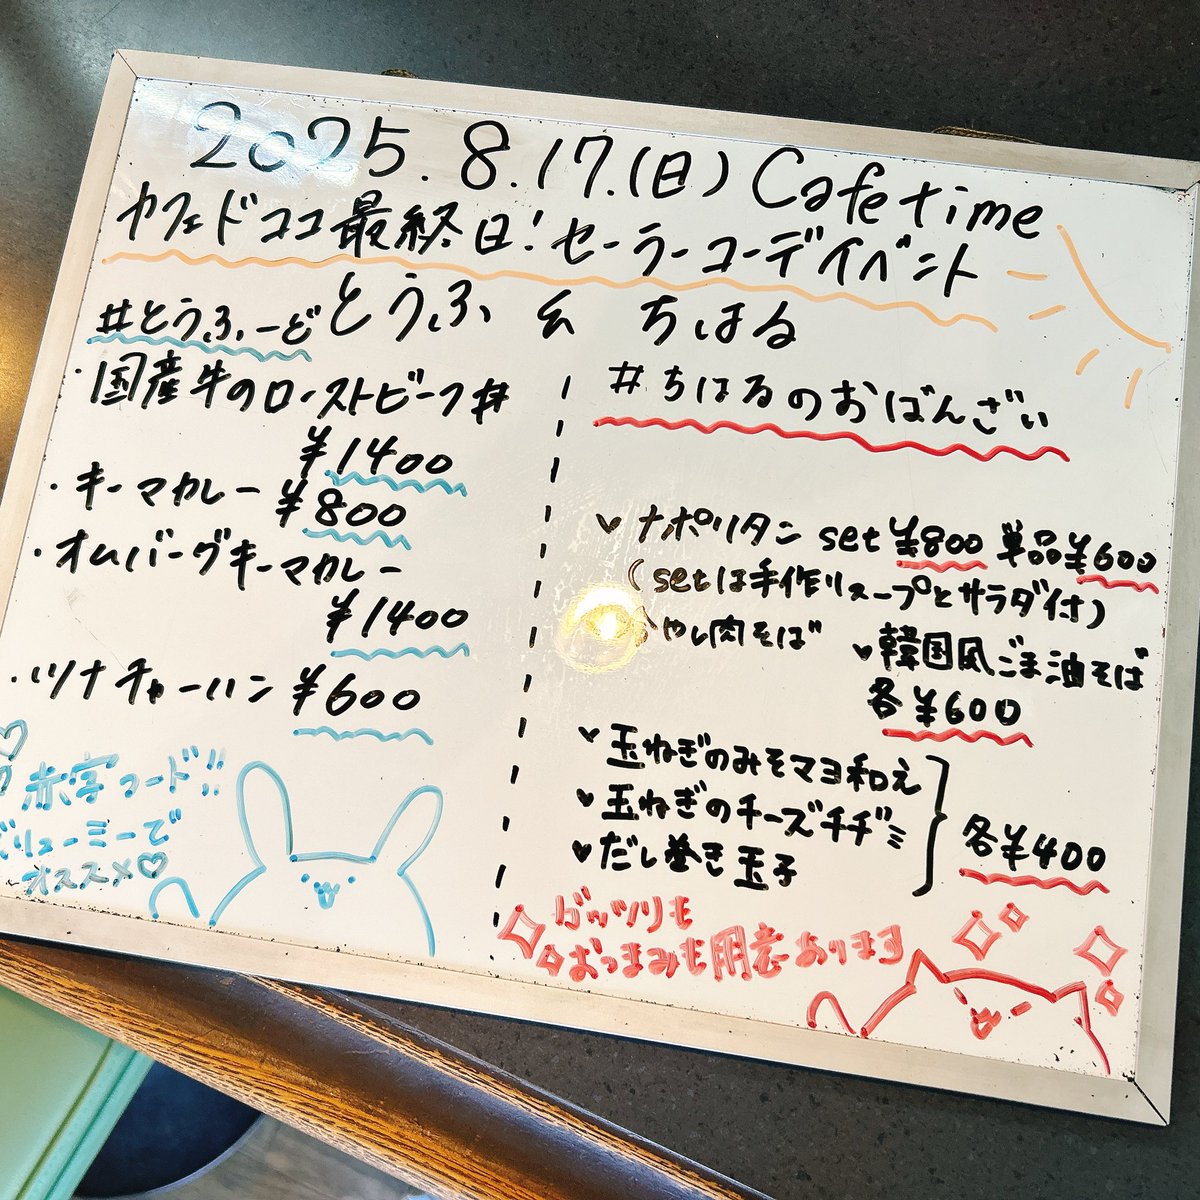 2025.8.17.(日) Cafe time
カフェドココ最終日!セーラーコーデイベント
とうふ & ちはる
#とうふーど
・国産牛のローストビーフ丼
¥1400
・キーマカレー ¥800
・オムバーグキーマカレー
¥1400
・ツナチャーハン ¥600
赤字フード!!
ボリューミーで
オススメ♡
#ちはるのおばんざい
♥ナポリタン set ¥800 単品¥600
(setは手作りスープとサラダ付)
やし肉そば
♥韓国風ごま油そば
各¥600
♥玉ねぎのみそマヨ和え
♥玉ねぎのチーズチヂミ
♥だし巻き玉子
各¥400
ガッツリも
おつまみも用意あります